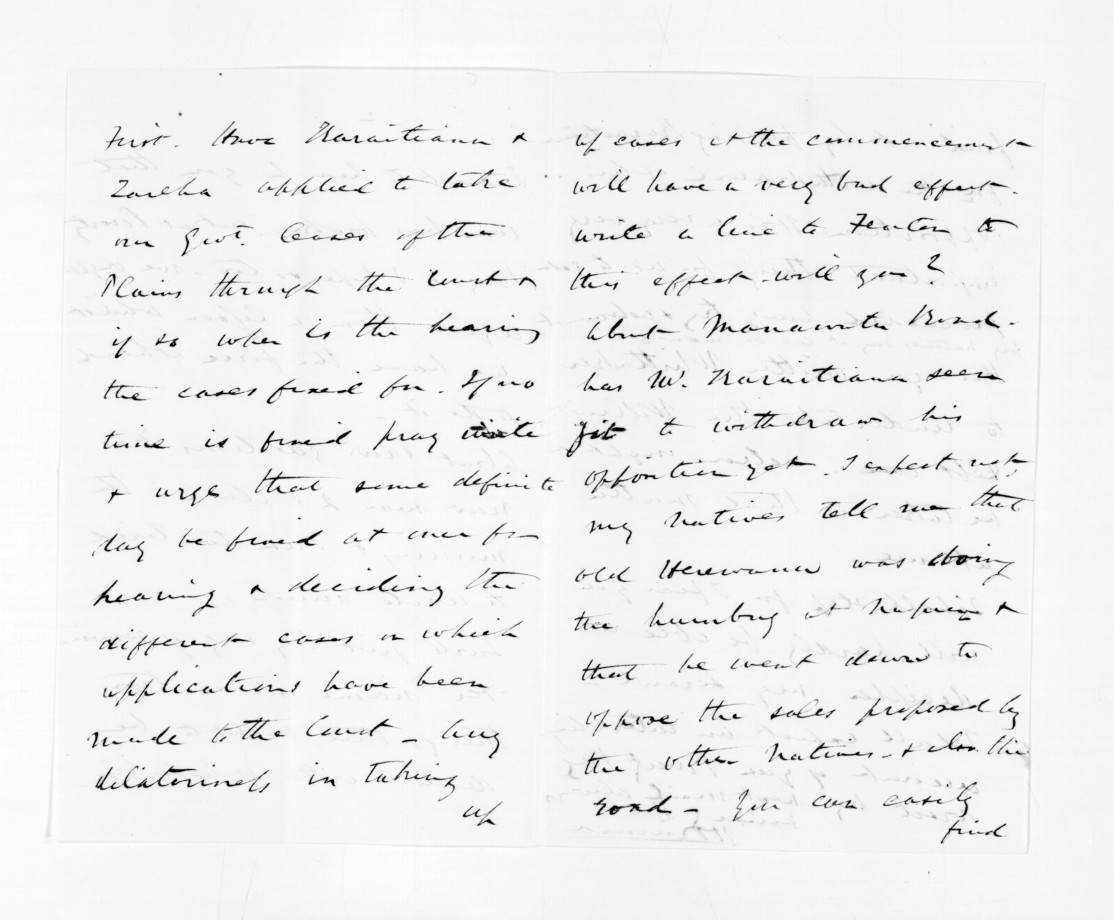 First. Have Karaitiana &
Zareha applied to take
our Govt. leases of the
Plains through the Court &
if so when is the hearing
the cases fixed for. If no
time is fixed pray write
& urge that some definite
day be fixed at once for
hearing & deciding the
different cases in which
applications have been
made to the Court _ Any
dilatoriness in taking
up
up cases at the commencement
will have a very bad effect.
write a line to Fenton to
this effect will you?
About Manawatu Road.
has Mr. Karaitiana seen
fit to withdraw his
opposition yet. I expect not,
my Natives tell me that
old Herewana was doing
the humbug at Napier &
that he went down to
oppose the sales proposed by
the other Natives. & also the
road _ You can easily
find